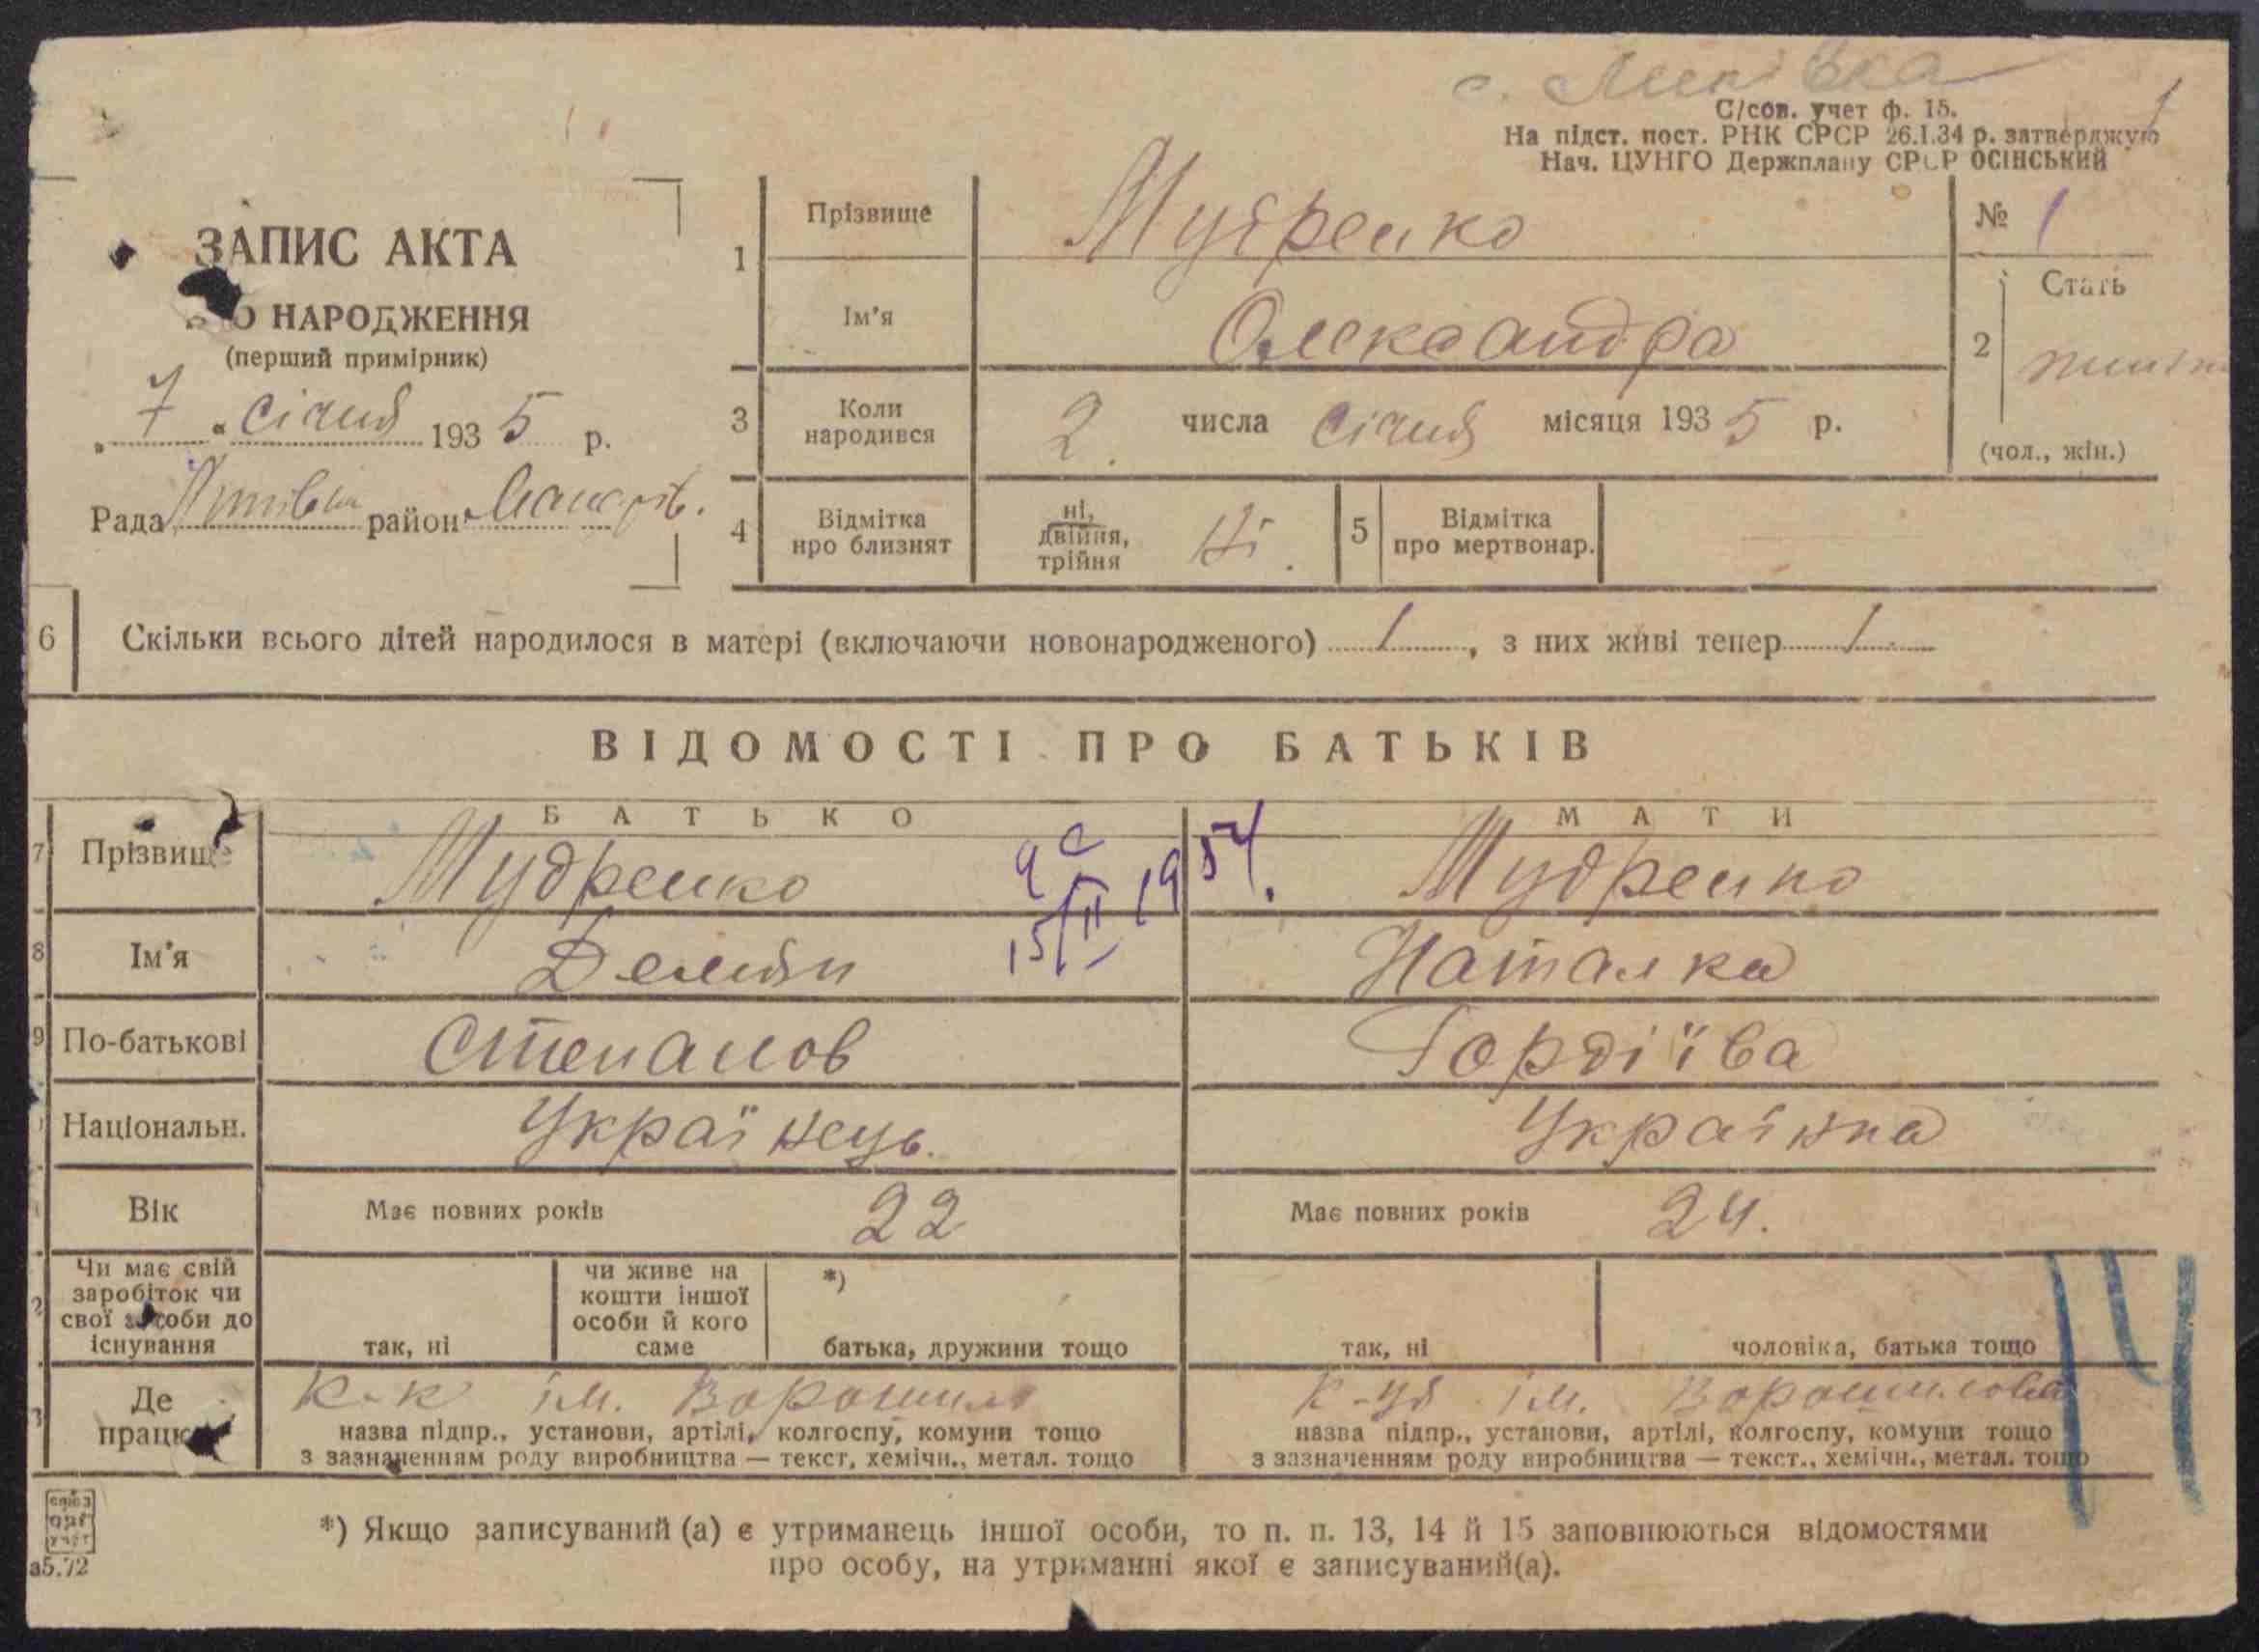 С/сов. учет ф. 15.
На підст. пост. РНК СРСР 26.I.34 р. затверджую
Нач. ЦУНГО Держплану СРСР ОСІНСЬКИЙ
ЗАПИС АКТА
ПРО НАРОДЖЕННЯ
(перший примірник)
„ 7 “ січня 193 5 р.
Рада район
1 Прізвище Мудренко
№ 1
Ім'я Олександра
2 Стать
(чол., жін.)
3 Коли народився 2 числа січня місяця 193 5 р.
4 Відмітка про близнят ні, двійня, трійня Ні.
5 Відмітка про мертвонар.
6 Скільки всього дітей народилося в матері (включаючи новонародженого) 1, з них живі тепер 1
ВІДОМОСТІ ПРО БАТЬКІВ
БАТЬКО МАТИ
7 Прізвище Мудренко Мудренко
15/II 1954.
8 Ім'я Демян Наталка
9 По-батькові Степанов Гордіїва
Національн. Українець. Українка
Вік Має повних років 22 Має повних років 24.
Чи має свій заробіток чи свої засоби до існування
так, ні
чи живе на кошти іншої особи й кого саме
*) батька, дружини тощо
так, ні
чоловіка, батька тощо
Де працює
к-к ім. Ворошил
назва підпр., установи, артілі, колгоспу, комуни тощо
з зазначенням роду виробництва — текст, хемічн., метал. тощо
к-ця ім. Ворошилова
назва підпр., установи, артілі, колгоспу, комуни тощо
з зазначенням роду виробництва — текст., хемічн., метал. тощо
14
*) Якщо записуваний (а) є утриманець іншої особи, то п. п. 13, 14 й 15 заповнюються відомостями
про особу, на утриманні якої є записуваний(а).
союз
орг
учет
а5.72